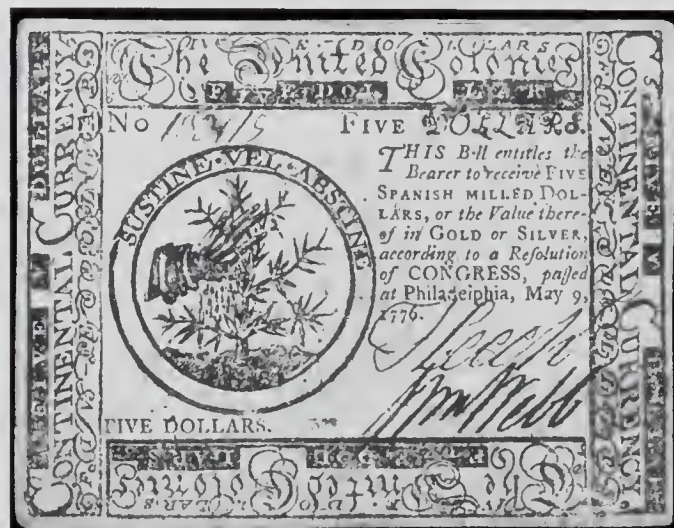 The United Colonies
FIVE DOLLARS
No
FIVE DOLLARS.
SUSTINE·VEL·ABSTINE
THIS Bill entitles the
Bearer to receive FIVE
SPANISH MILLED DOL-
LARS, or the Value there-
of in GOLD or SILVER,
according to a Reſolution
of CONGRESS, paſſed
at Philadelphia, May 9,
1776.
Wm Webb
FIVE DOLLARS.
CONTINENTAL CURRENCY
CONTINENTAL CURRENCY
The United Colonies